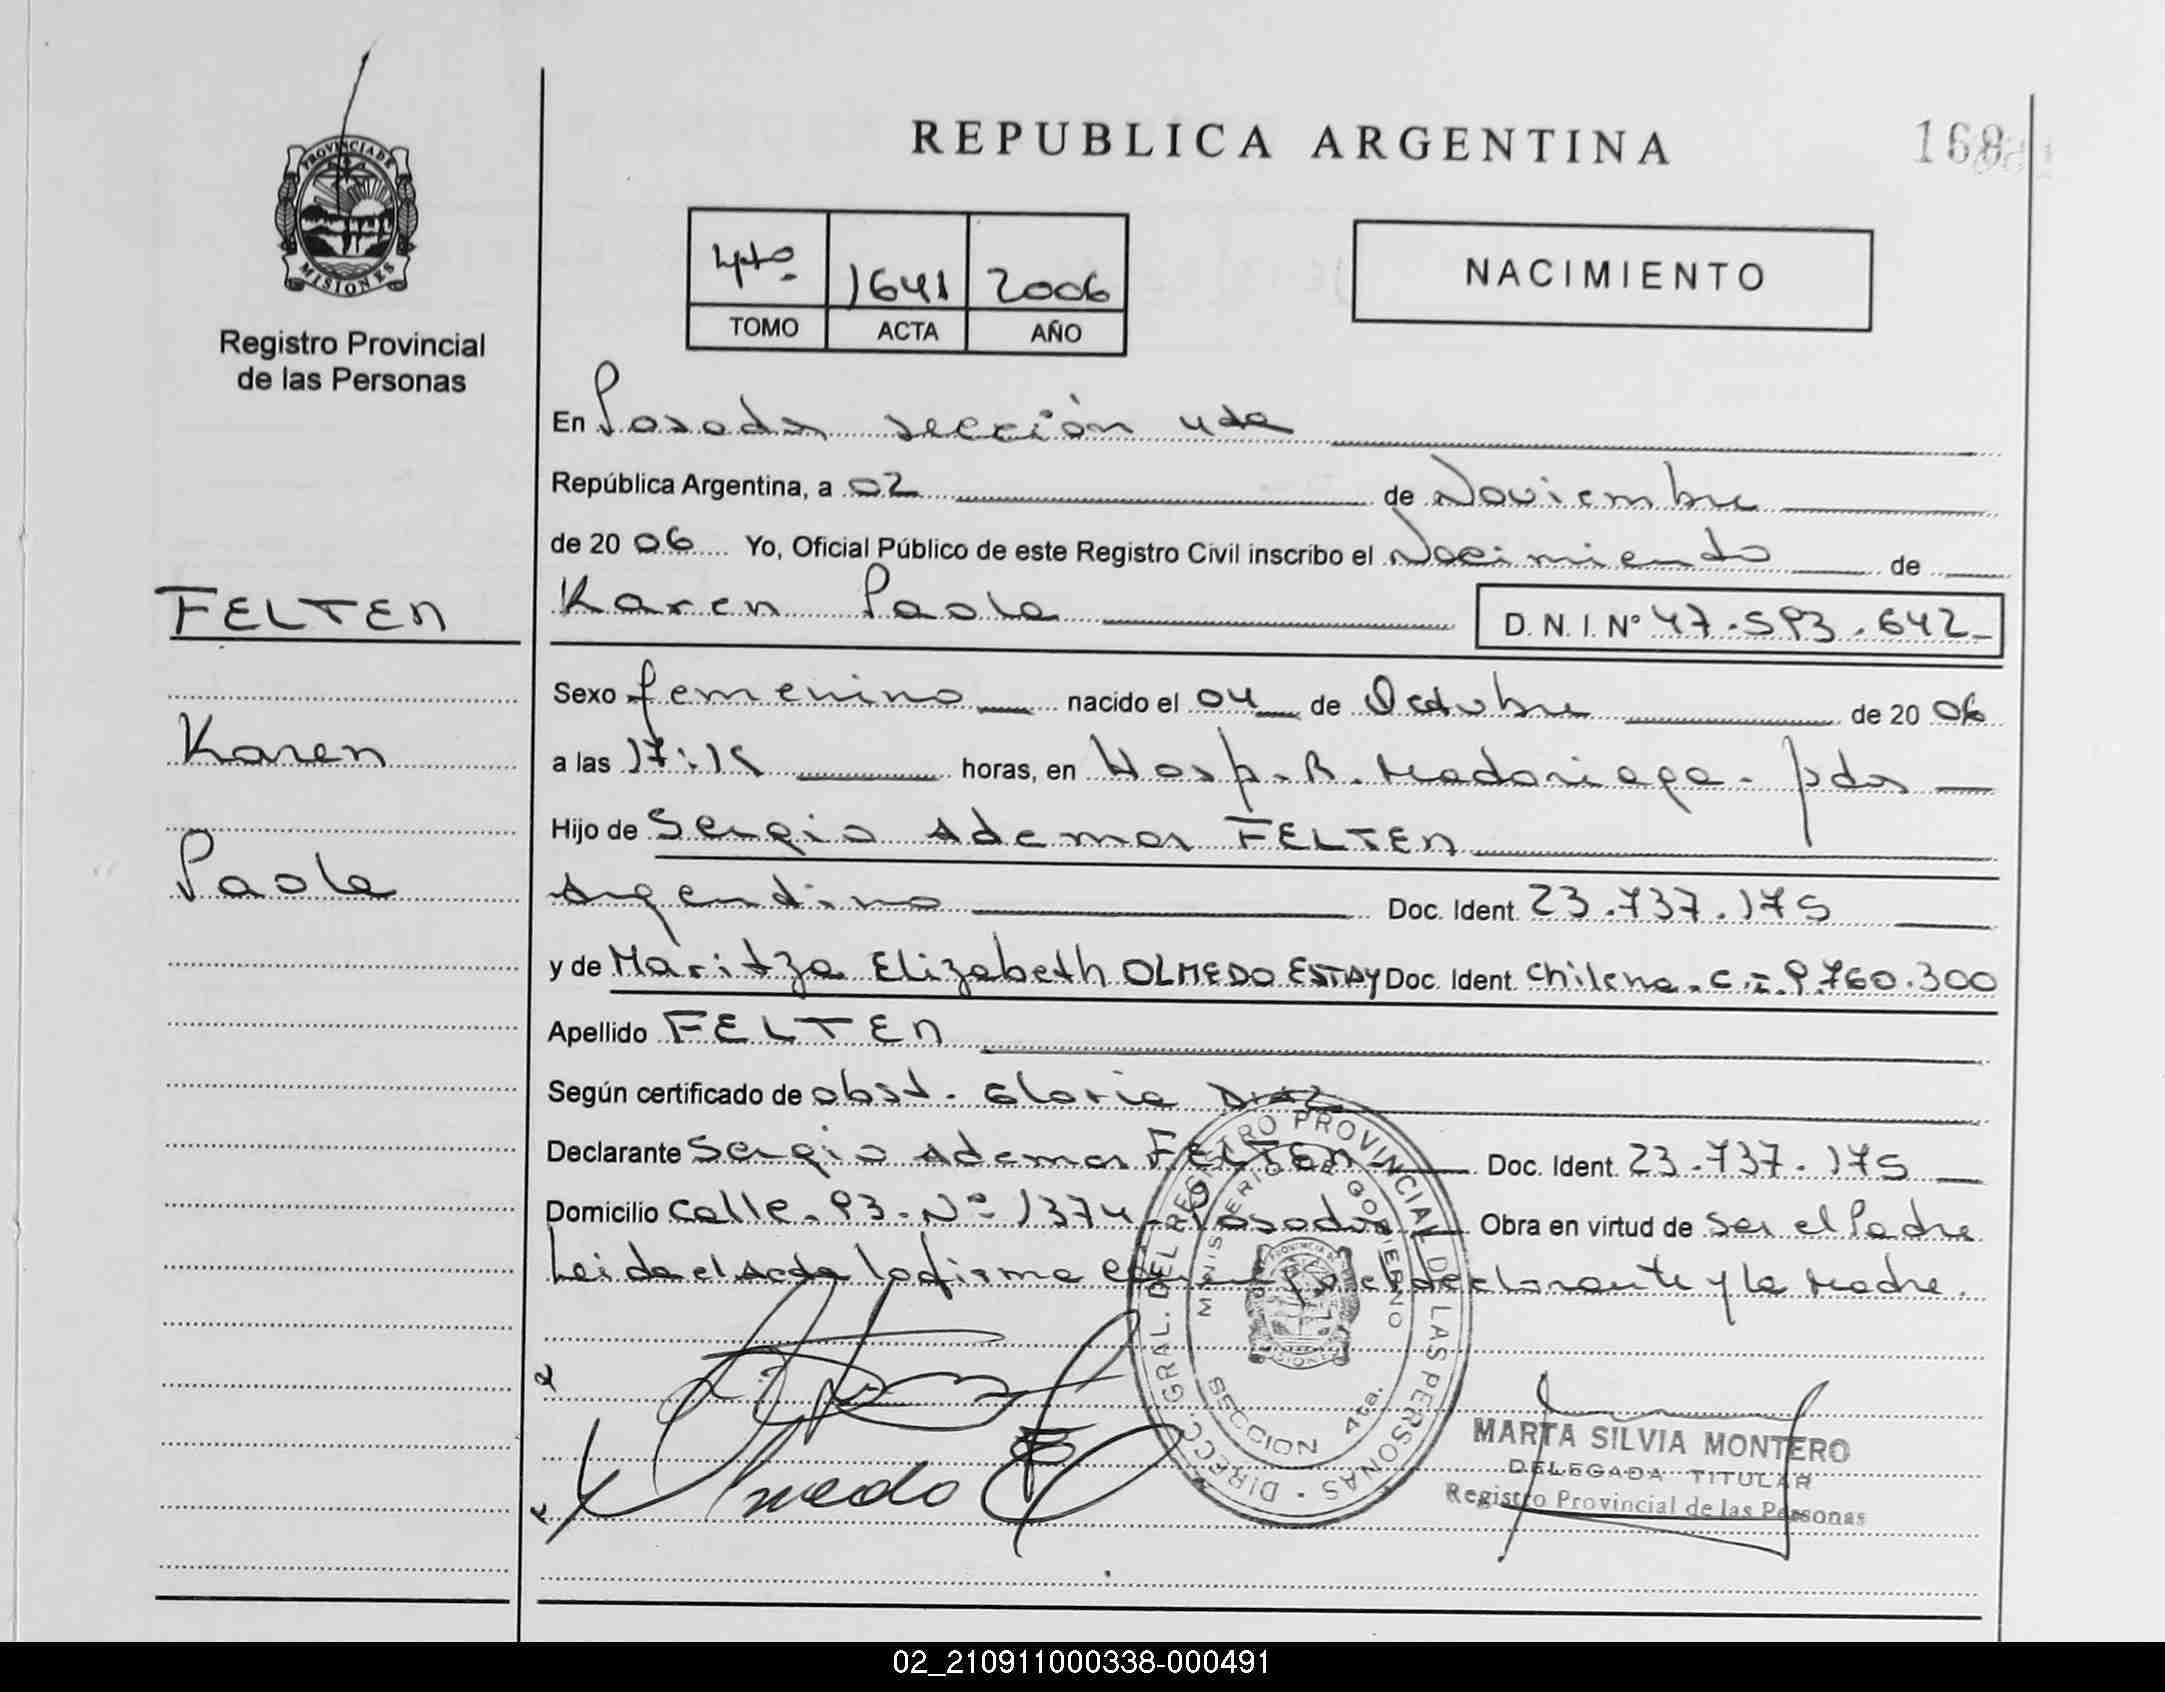 REPUBLICA ARGENTINA
168
PROVINCIA DE
MISIONES
Registro Provincial
de las Personas
4to 1641 2006
TOMO ACTA AÑO
NACIMIENTO
En Posadas sección 4ta
República Argentina, a 02 de Noviembre
de 20 06 Yo, Oficial Público de este Registro Civil inscribo el Nacimiento de
FELTEN
Karen Paola D. N. I. N° 47.593.642
Sexo femenino nacido el 04 de Octubre de 20 06
Karen
a las 17:15 horas, en Hosp. R. Madariaga - pdas
Hijo de Sergio Ademar FELTEN
Paola
Argentino Doc. Ident. 23.737.175
y de Maritza Elizabeth OLMEDO ESTAY Doc. Ident. Chilena. C.I. 9.760.300
Apellido FELTEN
Según certificado de obst. Gloria DIAZ
Declarante Sergio Ademar FELTEN Doc. Ident. 23.737.175
Domicilio calle. 93. Nº 1374 - Posadas Obra en virtud de ser el Padre
Leida el Acta la firma el declarante y la Madre.
DIRECC. GRAL. DEL REGISTRO PROVINCIAL DE LAS PERSONAS
MINISTERIO DE GOBIERNO
SECCION 4ta.
Olmedo E
MARTA SILVIA MONTERO
DELEGADA TITULAR
Registro Provincial de las Personas
02_210911000338-000491